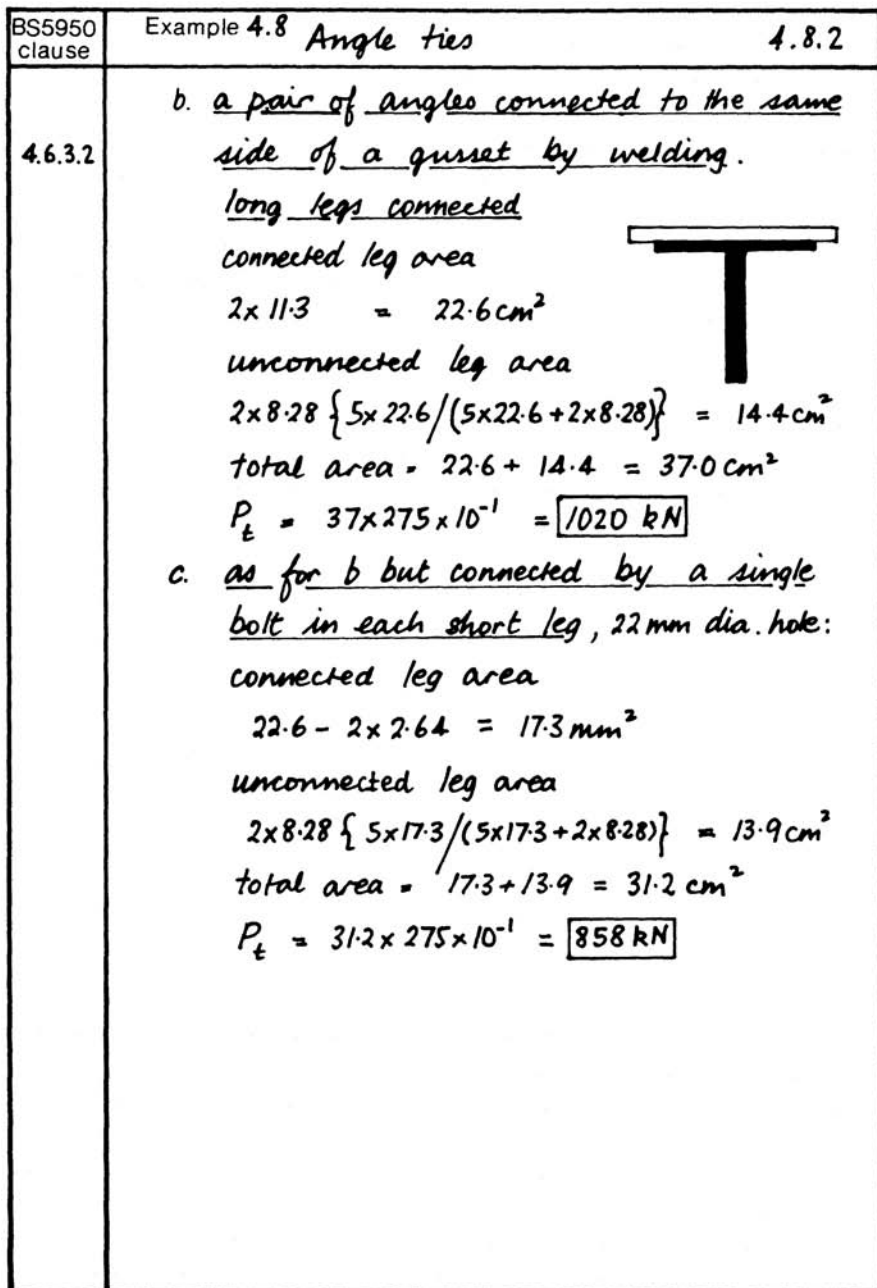 BS5950 clause
Example 4.8 Angle ties 4.8.2
b. a pair of angles connected to the same
4.6.3.2 side of a gusset by welding.
long legs connected
connected leg area
2x 11.3 = 22.6 cm²
unconnected leg area
2x8.28 {5x 22.6/(5x22.6 + 2x8.28)} = 14.4 cm²
total area = 22.6 + 14.4 = 37.0 cm²
Pt = 37x275 x 10⁻¹ = 1020 kN
c. as for b but connected by a single
bolt in each short leg, 22 mm dia. hole:
connected leg area
22.6 - 2x 2.64 = 17.3 mm²
unconnected leg area
2x8.28 { 5x17.3/(5x17.3 + 2x8.28)} = 13.9 cm²
total area = 17.3 + 13.9 = 31.2 cm²
Pt = 31.2 x 275 x 10⁻¹ = 858 kN